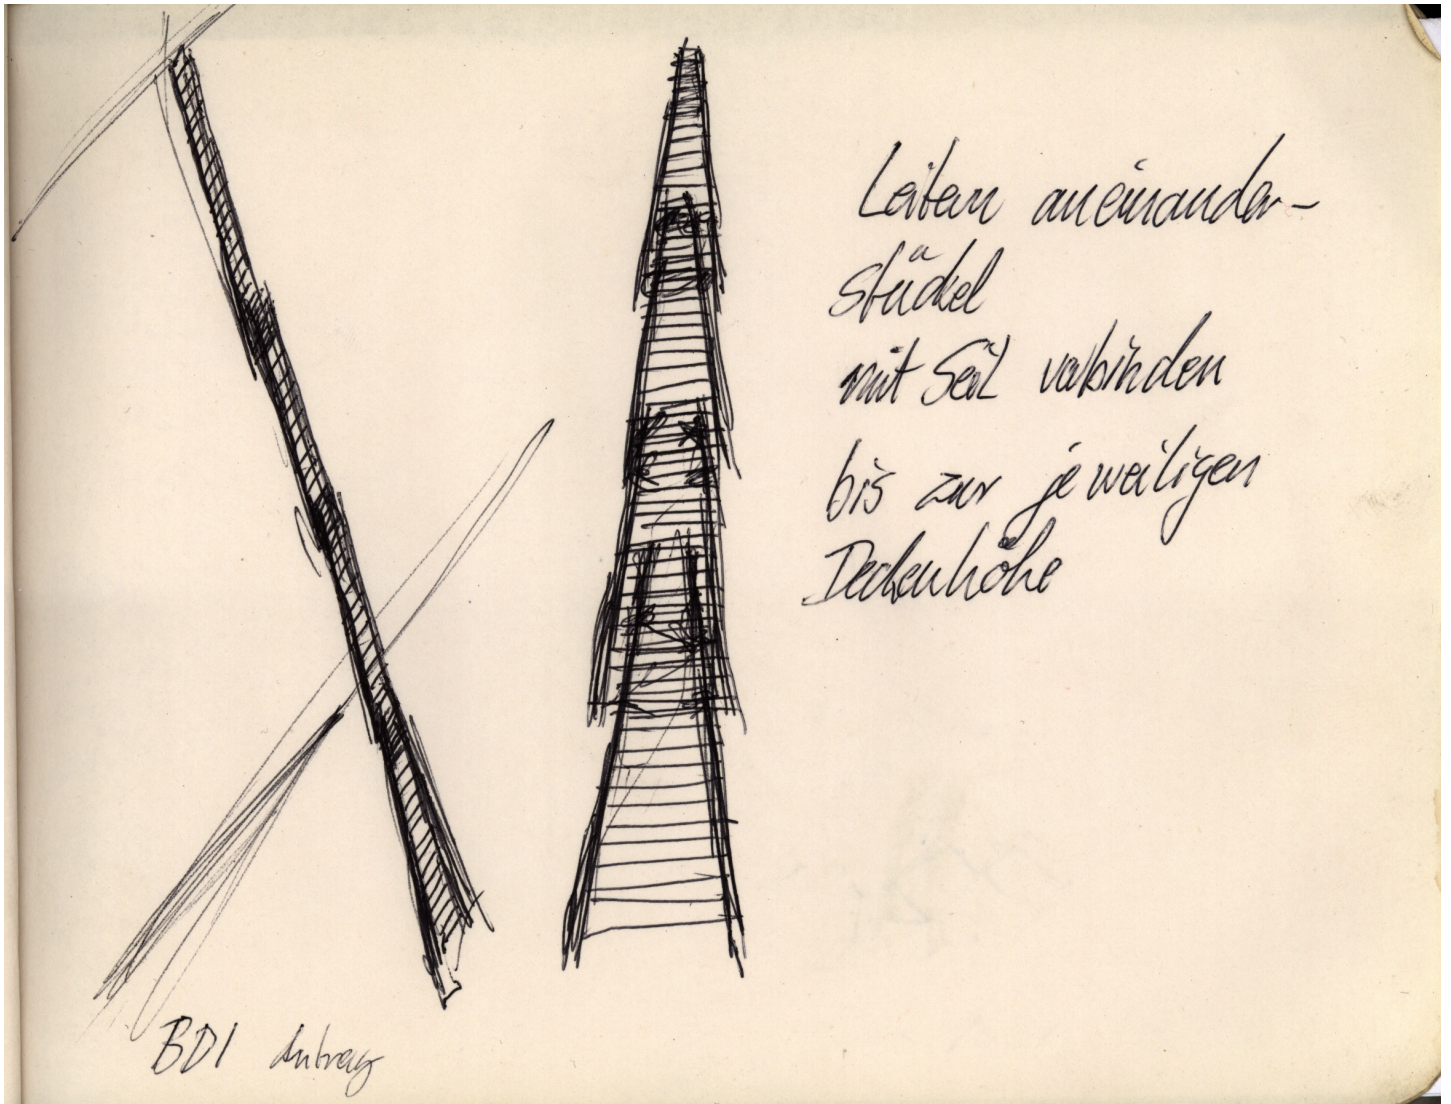 Leitern aneinander-
stückel
mit Seil verbinden
bis zur jeweiligen
Deckenhöhe
BDI Antrag